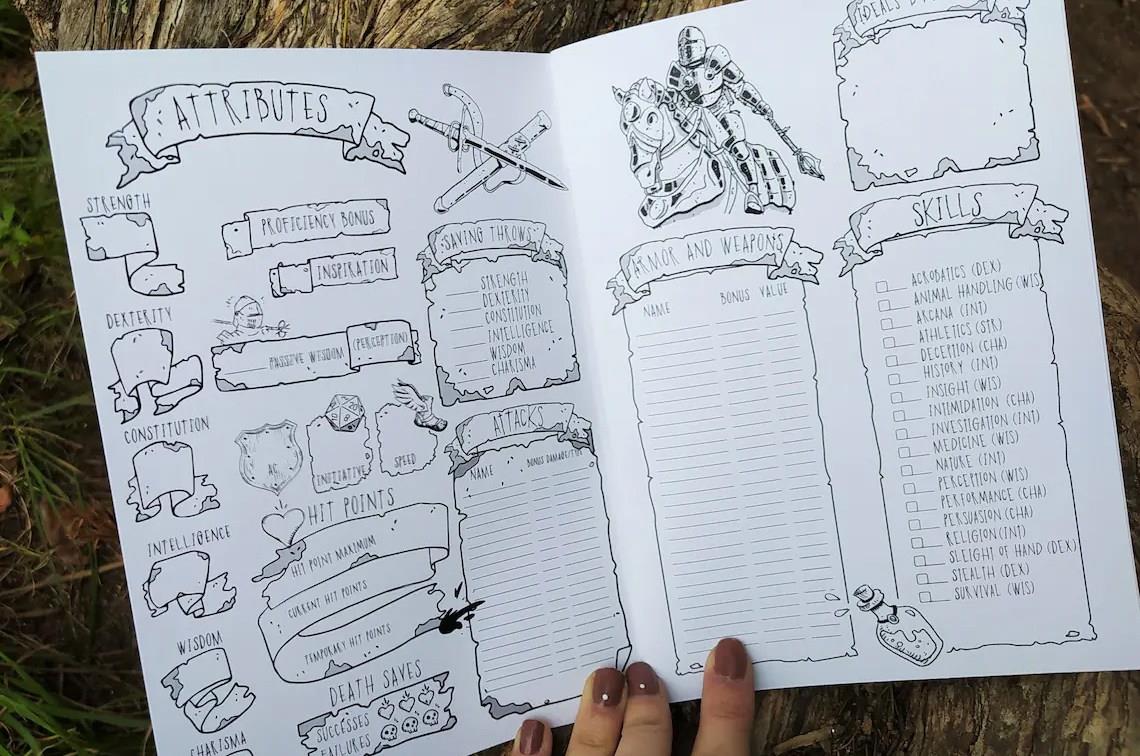 ATTRIBUTES
STRENGTH
PROFICIENCY BONUS
INSPIRATION
DEXTERITY
PASSIVE WISDOM (PERCEPTION)
CONSTITUTION
AC
INITIATIVE
SPEED
HIT POINTS
HIT POINT MAXIMUM
CURRENT HIT POINTS
TEMPORARY HIT POINTS
INTELLIGENCE
WISDOM
CHARISMA
DEATH SAVES
SUCCESSES
FAILURES
SAVING THROWS
STRENGTH
DEXTERITY
CONSTITUTION
INTELLIGENCE
WISDOM
CHARISMA
ATTACKS
NAME BONUS DAMAGE/TYPE
ARMOR AND WEAPONS
NAME BONUS VALUE
IDEALS
SKILLS
ACROBATICS (DEX)
ANIMAL HANDLING (WIS
ARCANA (INT)
ATHLETICS (STR)
DECEPTION (CHA)
HISTORY (INT)
INSIGHT (WIS)
INTIMIDATION (CHA)
INVESTIGATION (INT)
MEDICINE (WIS)
NATURE (INT)
PERCEPTION (WIS)
PERFORMANCE (CHA)
PERSUASION (CHA)
RELIGION (INT)
SLEIGHT OF HAND (DEX)
STEALTH (DEX)
SURVIVAL (WIS)